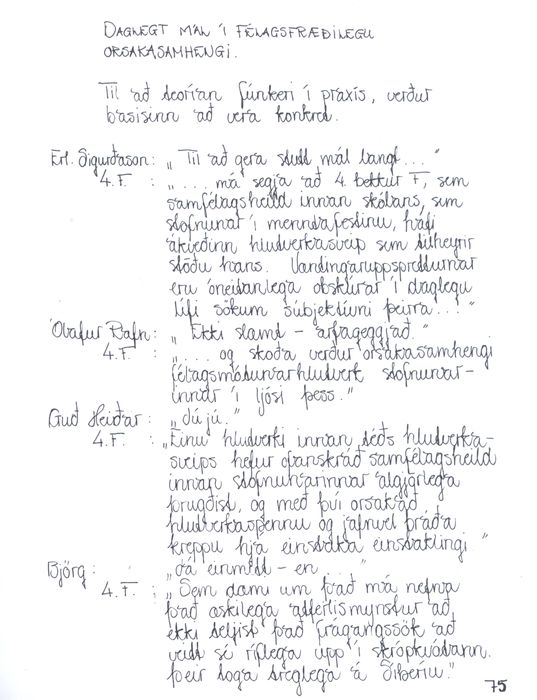 DAGLEGT MÁL Í FÉLAGSFRÆÐILEGU
ORSAKASAMHENGI.
Til að teorían fúnkeri í praxís, verður
basisinn að vera konkret.
Erl. Sigurðsson: „Til að gera stutt mál langt..."
4.F. : „... má segja að 4. bekkur F, sem
samfélagsheild innan skólans, sem
stofnunar í menntafestinu, hafi
ákveðinn hlutverkasveip sem tilheyrir
stöðu hans. Vandingaruppsprettunar
eru óneitanlega obskúrar í daglegu
lífi sökum súbjektívni þeirra..."
Ólafur Rafn: „Ekki slamt - arfageggjað."
4.F. : „... og skoða verður orsakasamhengi
félagsmótunarhlutverk stofnunar-
innar í ljósi þess."
Guð Heiðar: „Jú jú."
4.F. : „Einu hlutverki innan téðs hlutverka-
sveips hefur ofanskráð samfélagsheild
innan stofnunarinnar algjörlega
brugðist, og með því orsakað
hlutverkaspennu og jafnvel bráða
kreppu hjá einstaka einstaklingi"
Björg: „Já einmitt - en ..."
4.F. : „Sem dæmi um það má nefna
það æskilega atferlismynstur að
ekki teljist það frágangssök að
veitt sé ríflega upp í skrópkvótann.
Þeir toga treglega á Síberíu."
75